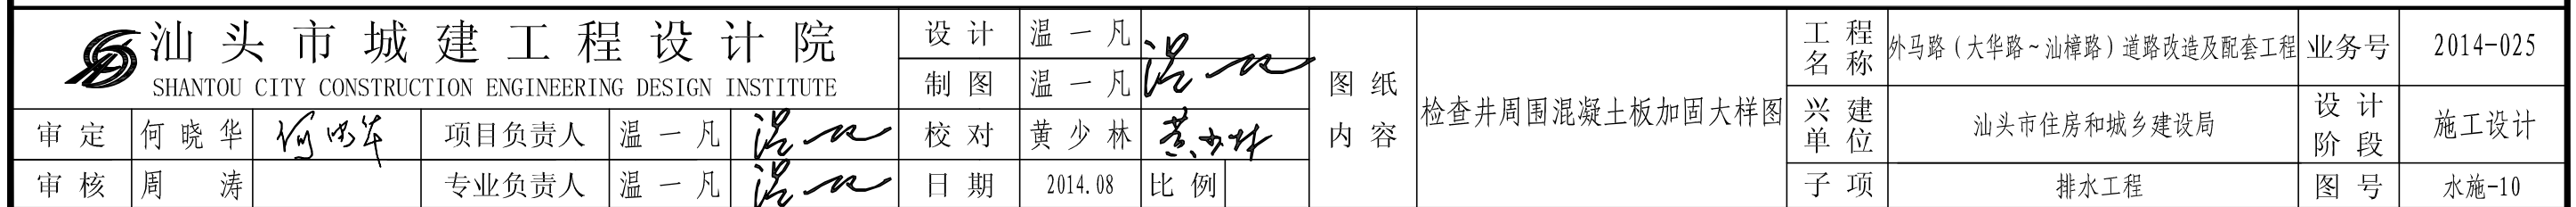 汕头市城建工程设计院
SHANTOU CITY CONSTRUCTION ENGINEERING DESIGN INSTITUTE
审定 何晓华 何晓华 项目负责人 温一凡
审核 周涛 专业负责人 温一凡
设计 温一凡
制图 温一凡
校对 黄少林 黄少林
日期 2014.08 比例
图纸内容 检查井周围混凝土板加固大样图
工程名称 外马路（大华路~汕樟路）道路改造及配套工程 业务号 2014-025
兴建单位 汕头市住房和城乡建设局 设计阶段 施工设计
子项 排水工程 图号 水施-10